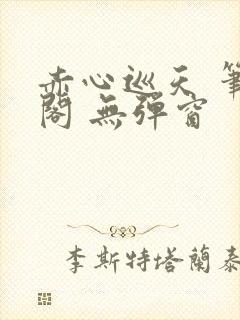 赤心巡天 筆
閣 無彈窗
李斯特塔蘭泰